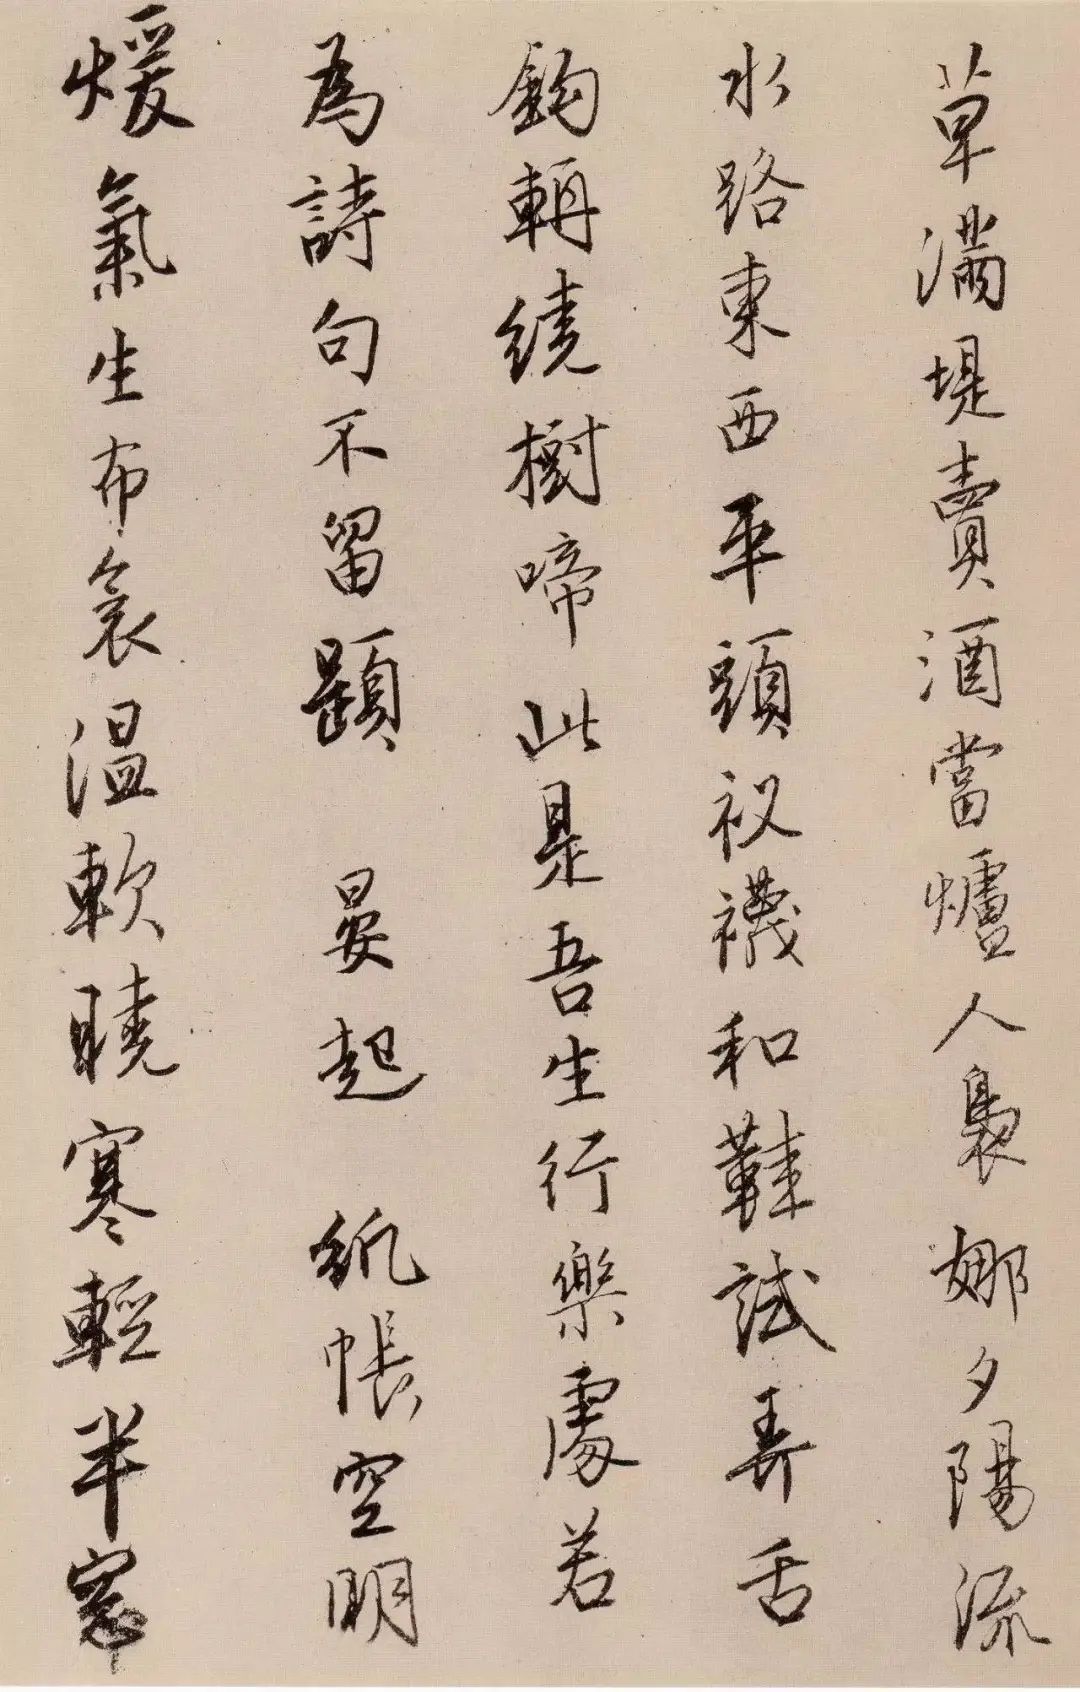 草滿堤賣酒當爐人裊娜夕陽流
水路東西平頭衩襪和鞵試弄舌
鉤輈繞樹啼此是吾生行樂處若
為詩句不留題 晏起 紙帳空明
煖氣生布衾温軟曉寒輕半窓